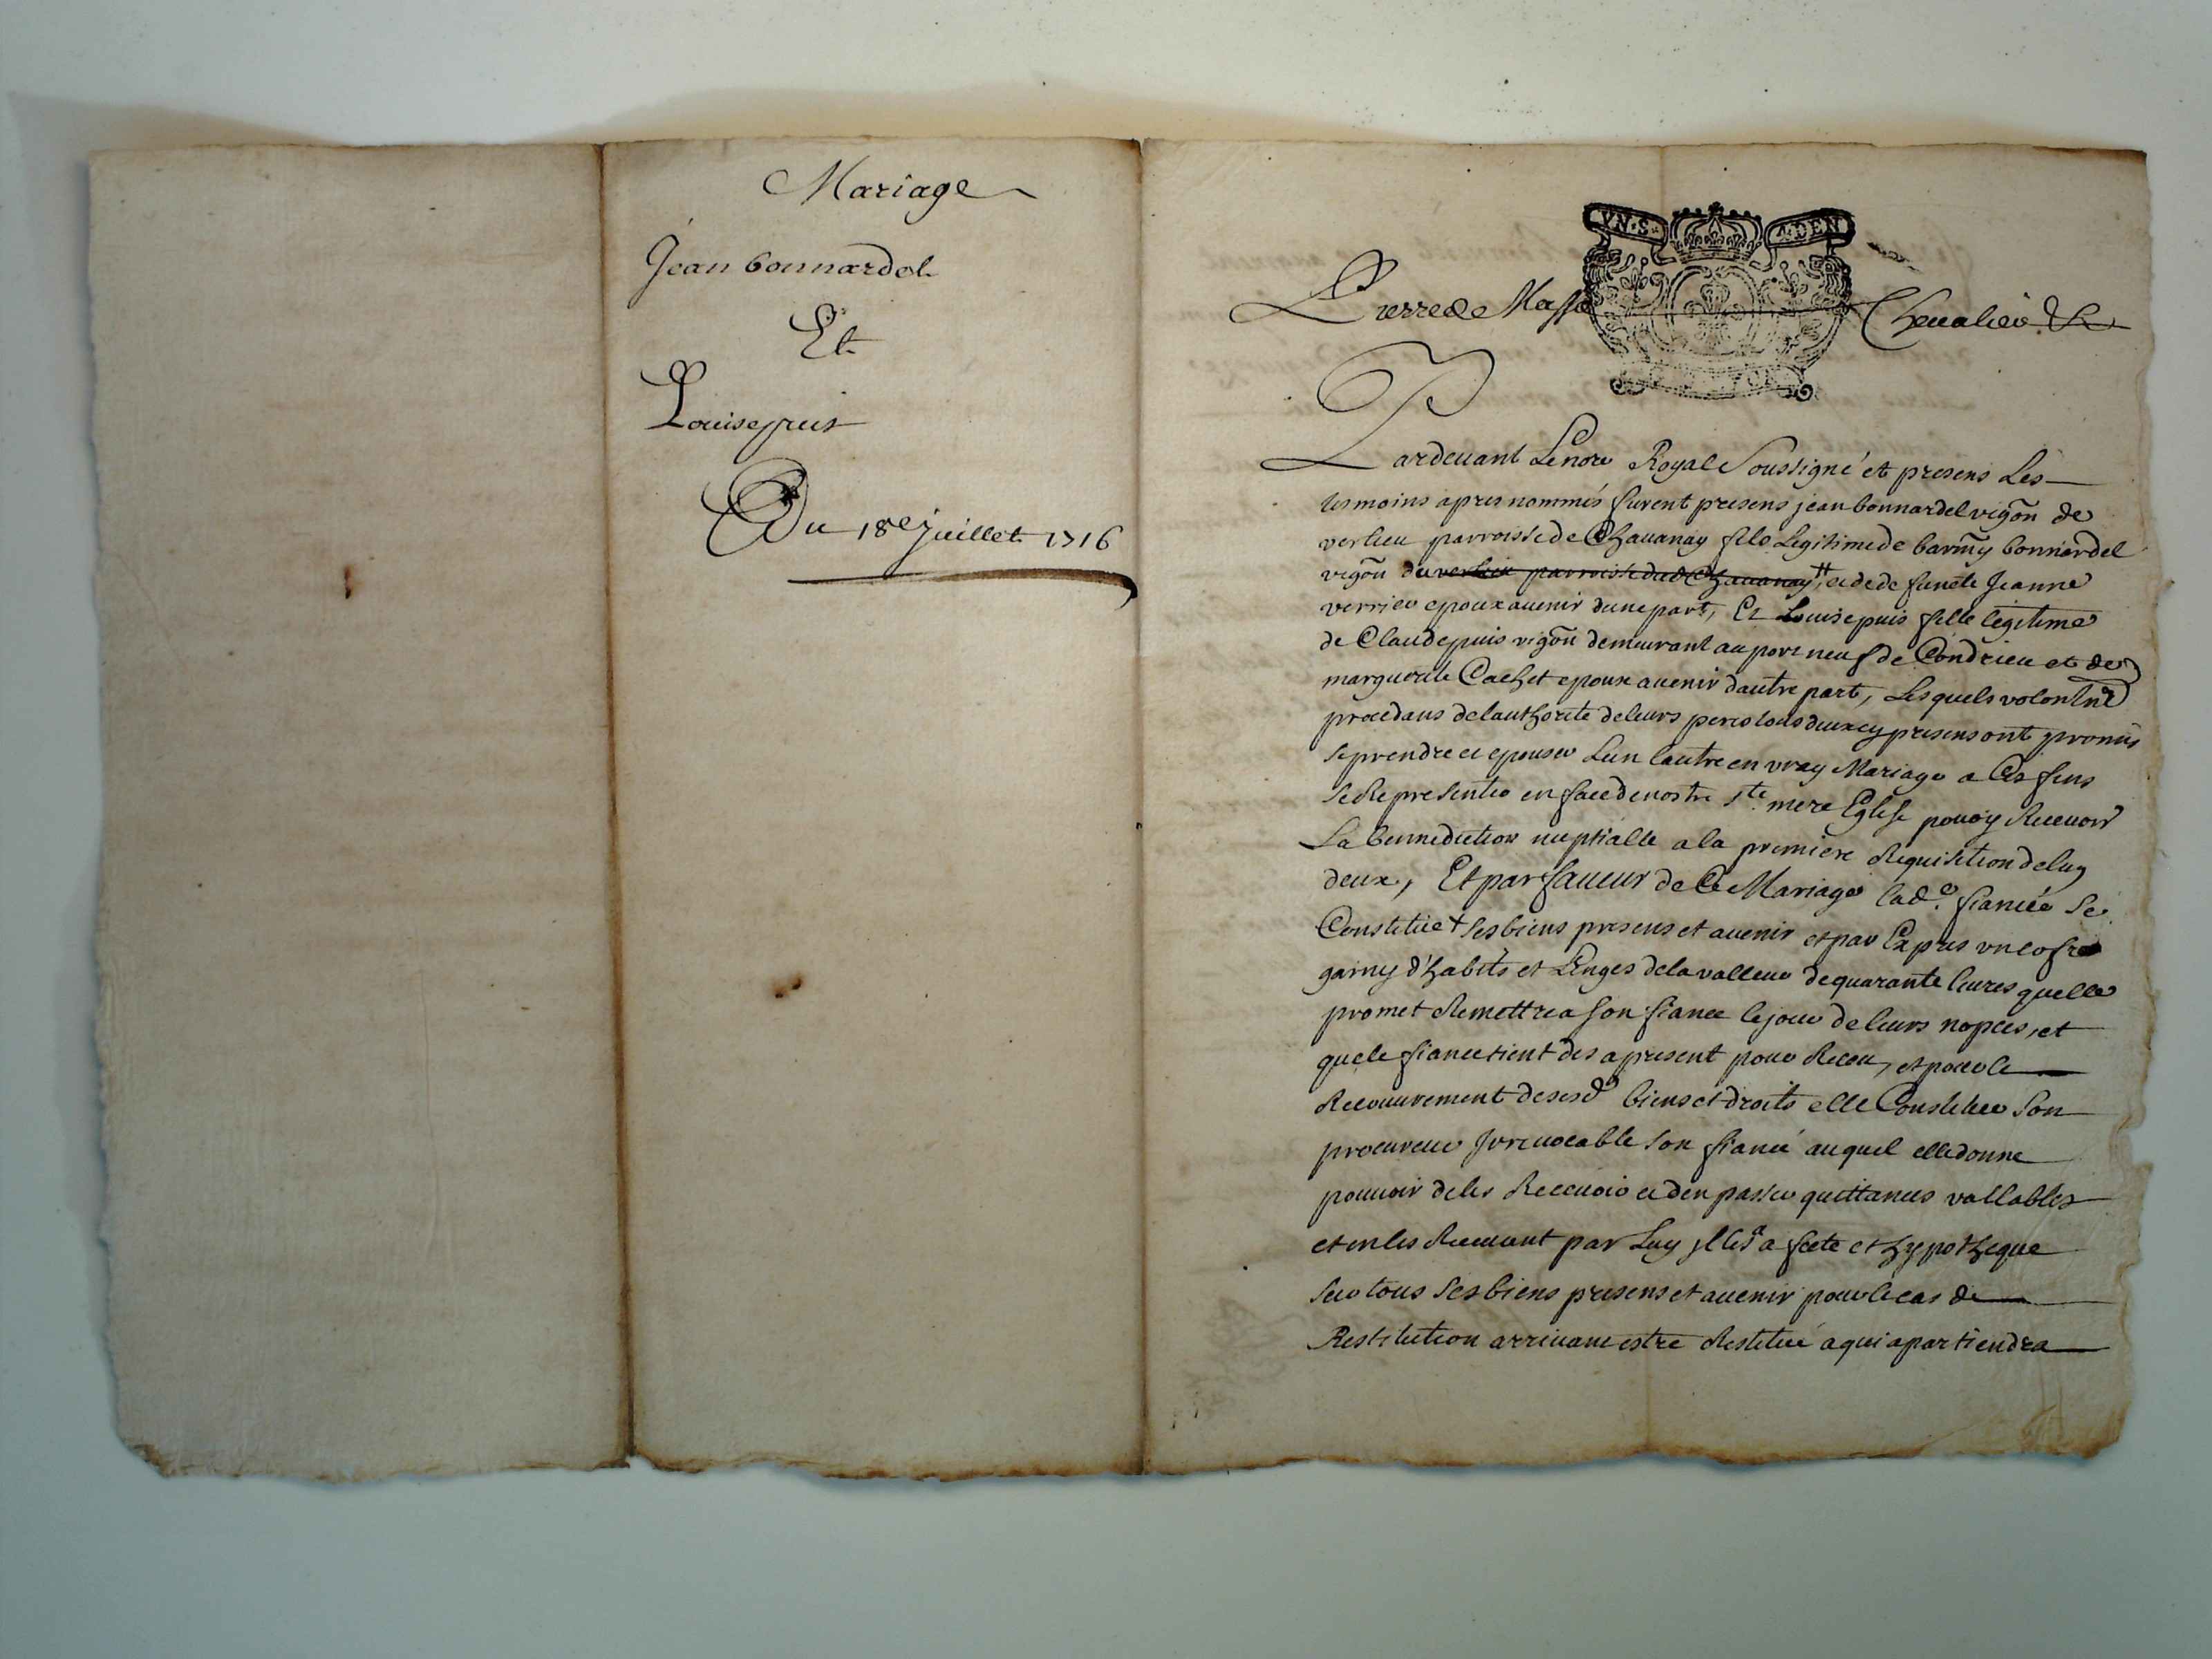 Mariage
Jean bonnardel
Et
Louise puis
Du 18e Juillet 1716
VN·S· A·DEN
Pierre de Masso Chevalier &c
Pardevant Le nore Royal Soussigné et presens Les
tesmoins apres nommés furent presens jean bonnardel vigōn de
verlieu parroisse de Chavanay fils Legitime de bartmy bonnardel
vigōn du verlieu parroisse dud Chavanay # et de functe Jeanne
verrier epoux avenir dune part, Et Louise puis fille legitime
de Claude puis vigōn demeurant au port neuf de Condrieu et de
marguerite Cachet epouse avenir dautre part, Lesquels volontre
procedans de lauthorité de leurs peres tous deux cy presens ont promis
se prendre et epouser Lun lautre en vray Mariage a Ces fins
se Representer en face de nostre ste mere Eglise pour y Recevoir
La bennediction nuptialle a la premiere Requisition de lug
deux, Et par faveur de Ce Mariage lade. fiancée se
Constitue + ses biens presens et avenir et par Expres un cofre
garny d'habits et Linges de la valleur de quarante livres quelle
promet Remettre a son fiancé le jour de leurs nopces, et
que le fiancé tient des apresent pour Receu, et pour le
Recouvrement de sesd biens et droits elle Constitue son
procureur Irrevocable son fiancé auquel elle donne
pouvoir de les Recevoir et den passer quittances vallables
et en les Recevant par Luy il les a fecte et hypotheque
sur tous ses biens presens et avenir pour le cas de
Restitution arrivant estre Restitué a qui apartiendra